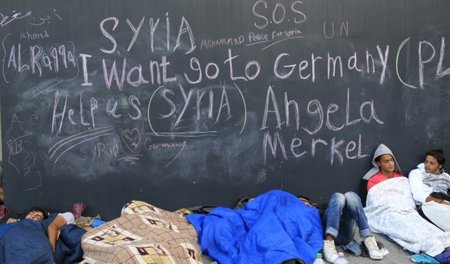 S.O.S
SYRIA
MOHAMMAD Peace For Syria U.N
Ahmad
(AL Raqqa)
I Want go to Germany (PL
Help us (SYRIA) Angela
Merkel
Germany